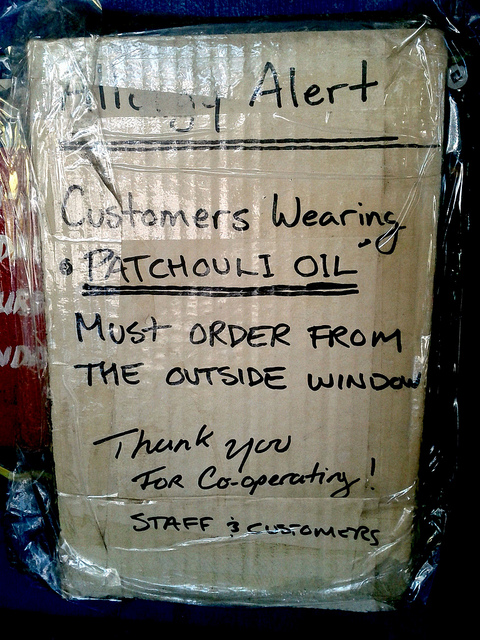 Allergy Alert
Customers Wearing
"PATCHOULI OIL"
MUST ORDER FROM
THE OUTSIDE WINDOW
Thank you
FOR Co-operating!
STAFF & CUSTOMERS